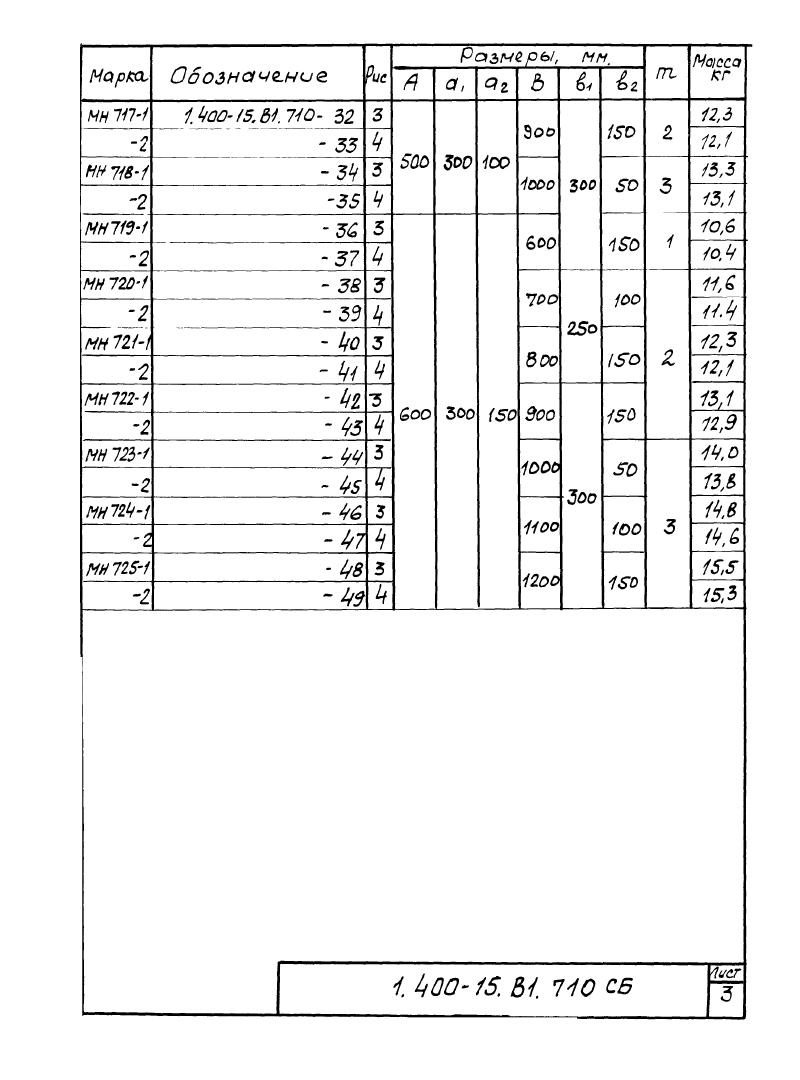 Марка Обозначение Рис Размеры, мм. m Масса кг
A a₁ a₂ B в₁ в₂
МН 717-1 1.400-15.В1.710- 32 3 500 300 100 900 300 150 2 12,3
-2 - 33 4 12,1
МН 718-1 - 34 3 1000 50 3 13,3
-2 -35 4 13,1
МН 719-1 - 36 3 600 300 150 600 150 1 10,6
-2 - 37 4 10.4
МН 720-1 - 38 3 700 250 100 2 11,6
-2 - 39 4 11.4
МН 721-1 - 40 3 800 150 12,3
-2 - 41 4 12,1
МН 722-1 - 42 3 900 300 150 13,1
-2 - 43 4 12,9
МН 723-1 - 44 3 1000 50 3 14,0
-2 - 45 4 13,8
МН 724-1 - 46 3 1100 100 14,8
-2 - 47 4 14,6
МН 725-1 - 48 3 1200 150 15,5
-2 - 49 4 15,3
1.400-15.В1.710 СБ
Лист
3